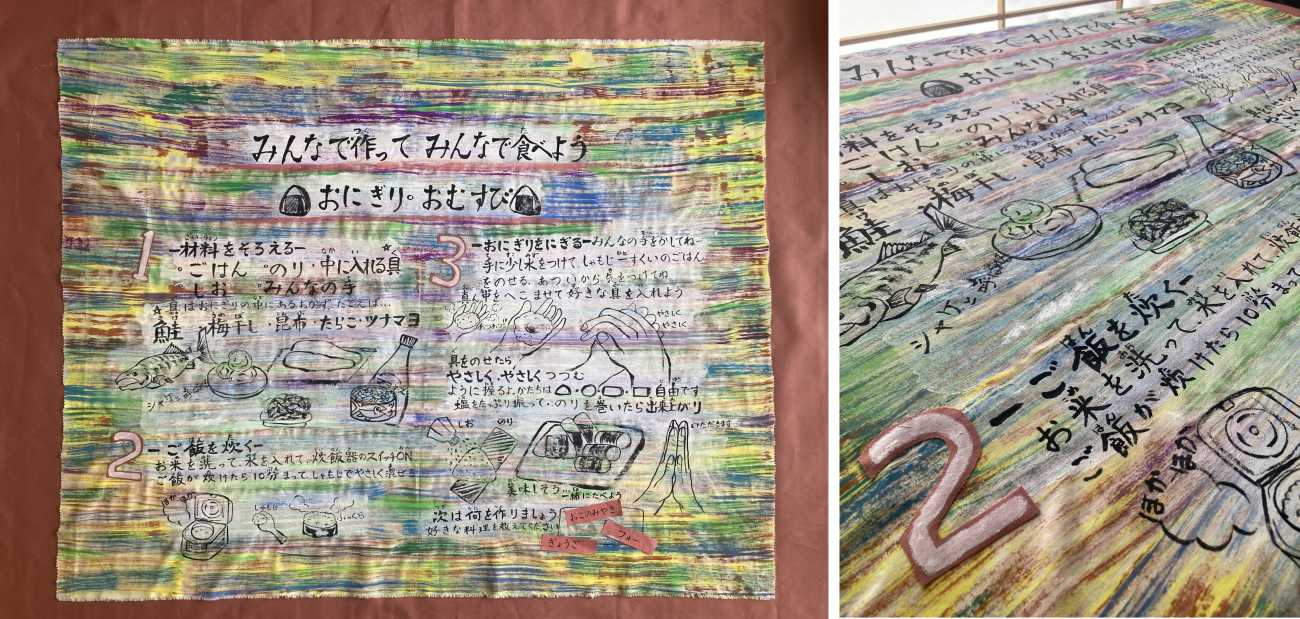 みんなで作って みんなで食べよう
おにぎり。おむすび
1
ー材料をそろえるー
ごはん のり・中に入れる具
しお みんなの手
具はおにぎりの中にあるおかず たとえば…
鮭 梅干し・昆布・たらこ・ツナマヨ
2
ーご飯を炊くー
お米を洗って、水を入れて、炊飯器のスイッチON
ご飯が炊けたら10分まって、しゃもじでやさしく混ぜる
ほかほか
しゃもじ
3
ーおにぎりをにぎるー みんなの手をかしてね
手に少し水をつけて、しゃもじ一すくいのごはん
をのせる。あついから気をつけてね
真ん中をへこませて好きな具を入れよう
やさしく
やさしく
具をのせたら
やさしく、やさしくつつむ
ように握るよ。かたちは 自由です
塩をたっぷり振って・のりを巻いたら出来上がり
しお のり
いただきます
美味しそう…
一緒にたべよう
次は何を作りましょう
好きな料理を教えてください
おこのみやき
フォー
ぎょうざ
みんなで作って みんなで食べよう
おにぎり。おむすび
3
材料をそろえるー
ごはん のり・中に入れる具
しお みんなの手
鮭 梅干し 昆布・たらこ・ツナマヨ
2
ーご飯を炊くー
お米を洗って、水を入れて、炊飯
ご飯が炊けたら10分まって
ほかほか